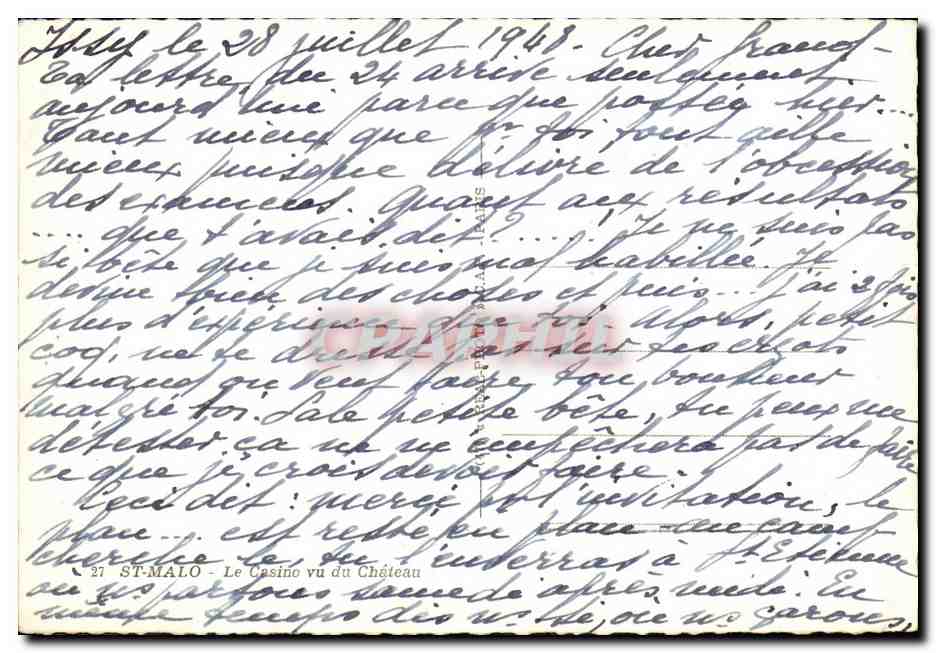 Issy le 28 juillet 1948. Cher Grand -
Ta lettre du 24 arrive seulement
aujourd'hui parce que postée hier....
Tant mieux que pr toi tout aille
mieux puisque délivré de l'obcession
des examens. Quant aux résultats
.... que t'avais dit? ...... ! Je ne suis pas
si bête que je suis mal habillée. Je
devine bien des choses et puis... j'ai 2 fois
plus d'expérience que toi. Alors, petit
coq, ne te dresse pas sur tes ergots
quand on veut faire ton bonheur
malgré toi. Sale petite bête, tu peux me
détester ça ne m'empêchera pas de faire
ce que je crois devoir faire.
Ceci dit: merci pr l'invitation, le
plan... est resté en plan
cherche le tu l'enverras à St Etienne
27 ST-MALO - Le Casino vu du Château
où ns partons samedi après-midi. En
même temps dis ns si, où ns garons,
REAL-PHOTO
PARIS
CRAPHIL